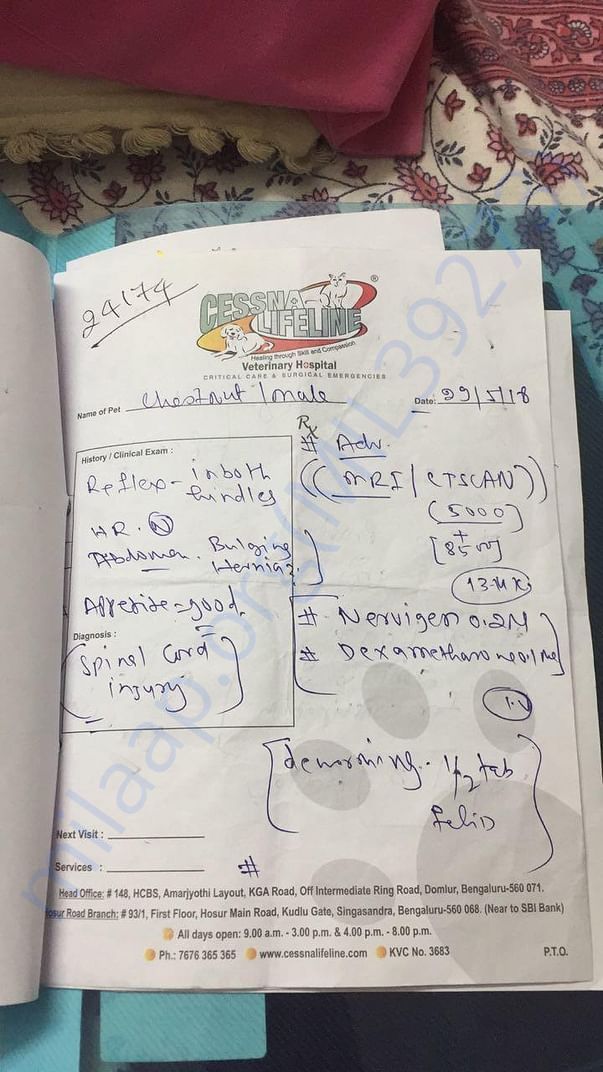 24174
CESSNA
LIFELINE
®
Healing through Skill and Compassion
Veterinary Hospital
CRITICAL CARE & SURGICAL EMERGENCIES
Name of Pet Chestnut / male
Date: 29/5/18
History / Clinical Exam :
Reflex - in both
hindles
HR. N
Abdomen. Bulging
Hernia?
Appetite = good.
Diagnosis :
Spinal Cord
injury
Rx
# Adv.
((MRI / CTSCAN))
(5000)
+
[8500]
# Nervigen 0.2ml
I.V
[deworming. 1/2 tab
Next Visit :
Services :
#
Head Office: # 148, HCBS, Amarjyothi Layout, KGA Road, Off Intermediate Ring Road, Domlur, Bengaluru-560 071.
Hosur Road Branch: # 93/1, First Floor, Hosur Main Road, Kudlu Gate, Singasandra, Bengaluru-560 068. (Near to SBI Bank)
All days open: 9.00 a.m. - 3.00 p.m. & 4.00 p.m. - 8.00 p.m.
Ph.: 7676 365 365 www.cessnalifeline.com KVC No. 3683
P.T.O.